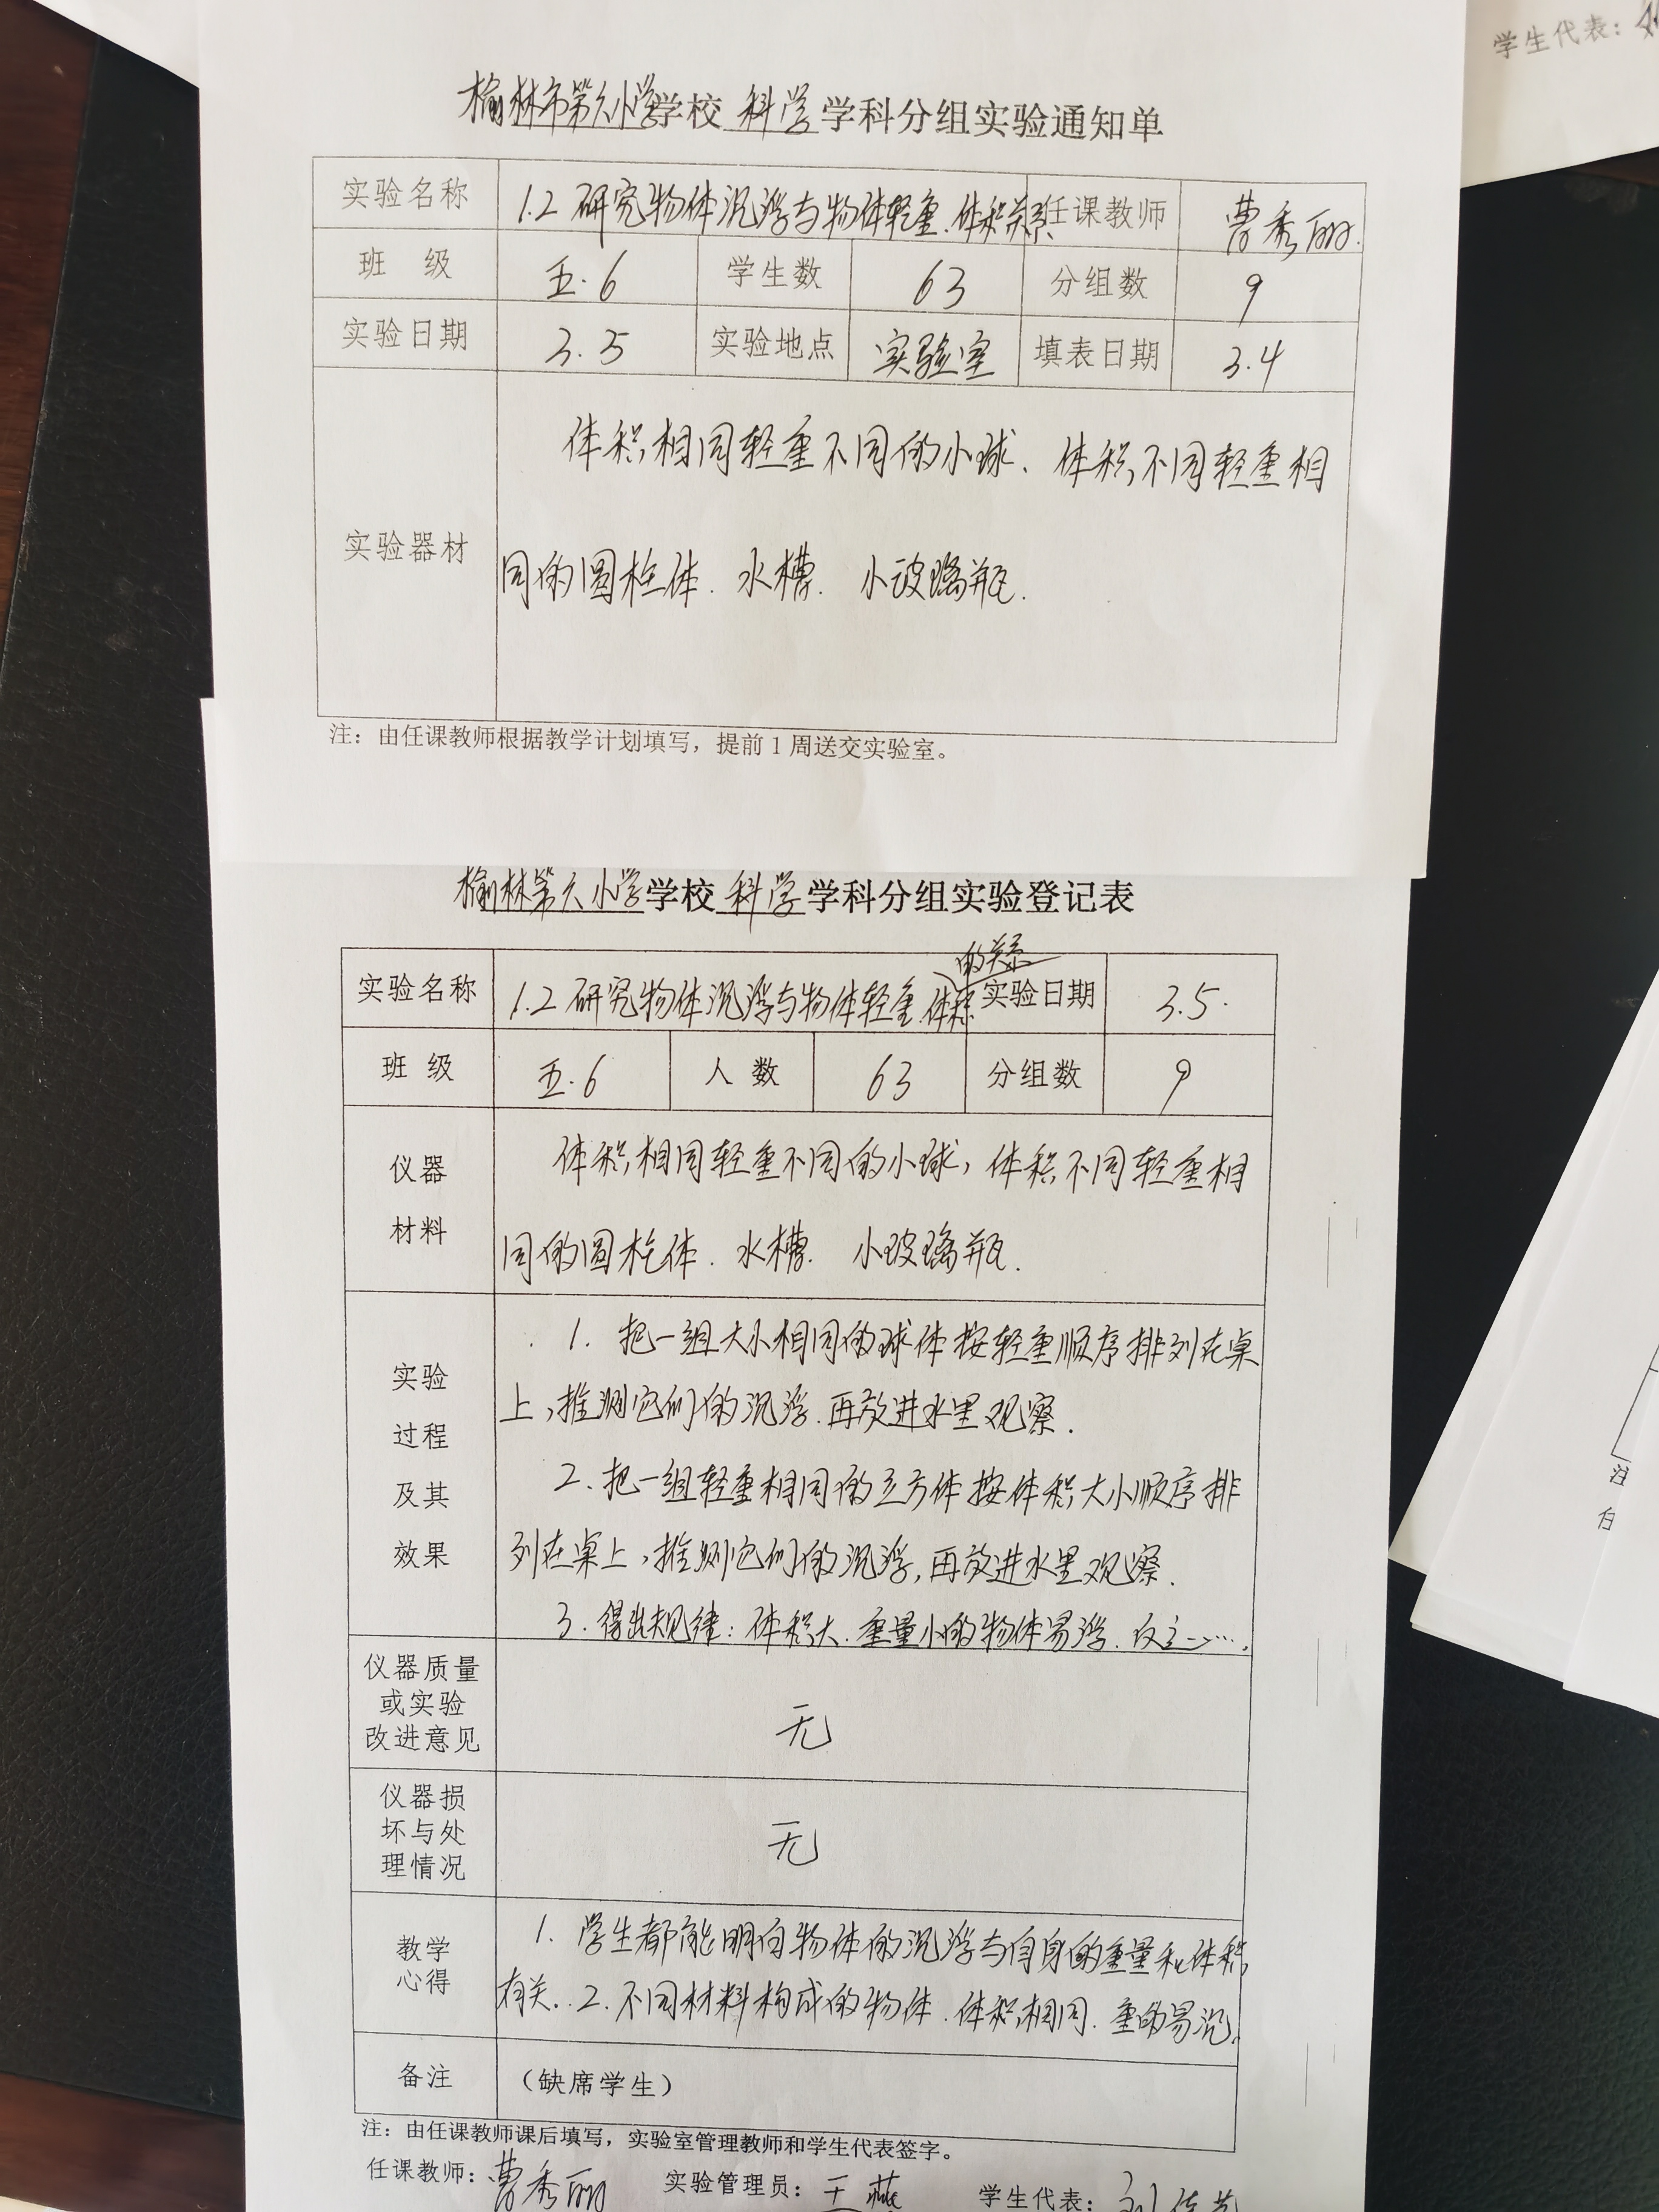 学生代表：
榆林市第六小学学校 科学 学科分组实验通知单
实验名称 1.2 研究物体沉浮与物体轻重.体积关系 任课教师 曹秀丽.
班 级 五.6 学生数 63 分组数 9
实验日期 3.5 实验地点 实验室 填表日期 3.4
体积相同轻重不同的小球、体积不同轻重相
实验器材
同的圆柱体. 水槽. 小玻璃瓶.
注：由任课教师根据教学计划填写，提前1周送交实验室。
榆林第六小学学校 科学 学科分组实验登记表
的关系
实验名称 1.2 研究物体沉浮与物体轻重.体积 实验日期 3.5.
班 级 五.6 人 数 63 分组数 9
仪器 体积相同轻重不同的小球，体积不同轻重相
材料 同的圆柱体. 水槽. 小玻璃瓶.
实验 1. 把一组大小相同的球体按轻重顺序排列在桌
过程 上，推测它们的沉浮.再放进水里观察.
及其 2. 把一组轻重相同的立方体按体积大小顺序排
效果 列在桌上，推测它们的沉浮，再放进水里观察.
3. 得出规律：体积大.重量小的物体易浮.反之….
仪器质量
或实验 无
改进意见
仪器损
坏与处 无
理情况
教学 1. 学生都能明白物体的沉浮与自身的重量和体积
心得 有关. 2. 不同材料构成的物体.体积相同.重的易沉.
备注 （缺席学生）
注：由任课教师课后填写，实验室管理教师和学生代表签字。
任课教师：曹秀丽 实验管理员：王燕 学生代表：
注